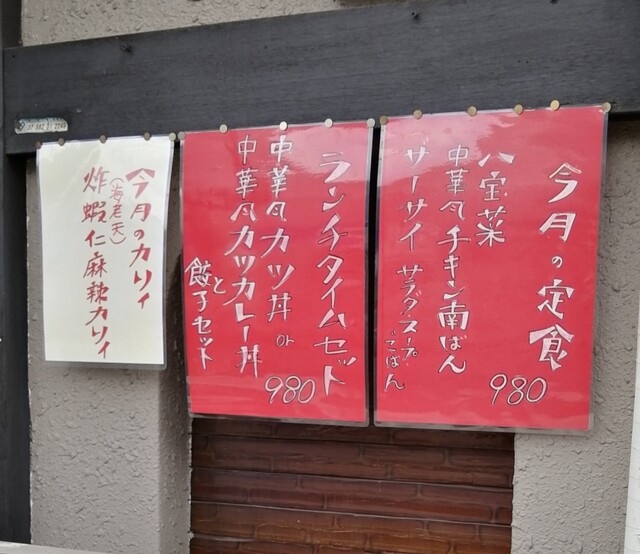 今月の定食
八宝菜
中華風チキン南ばん
ザーサイ サラダ・スープ・ごはん
980
ランチタイムセット
中華風カツ丼 or
中華風カツカレー丼
と
餃子セット
980
今月のカリィ
(海老天)
炸蝦仁麻辣カリィ